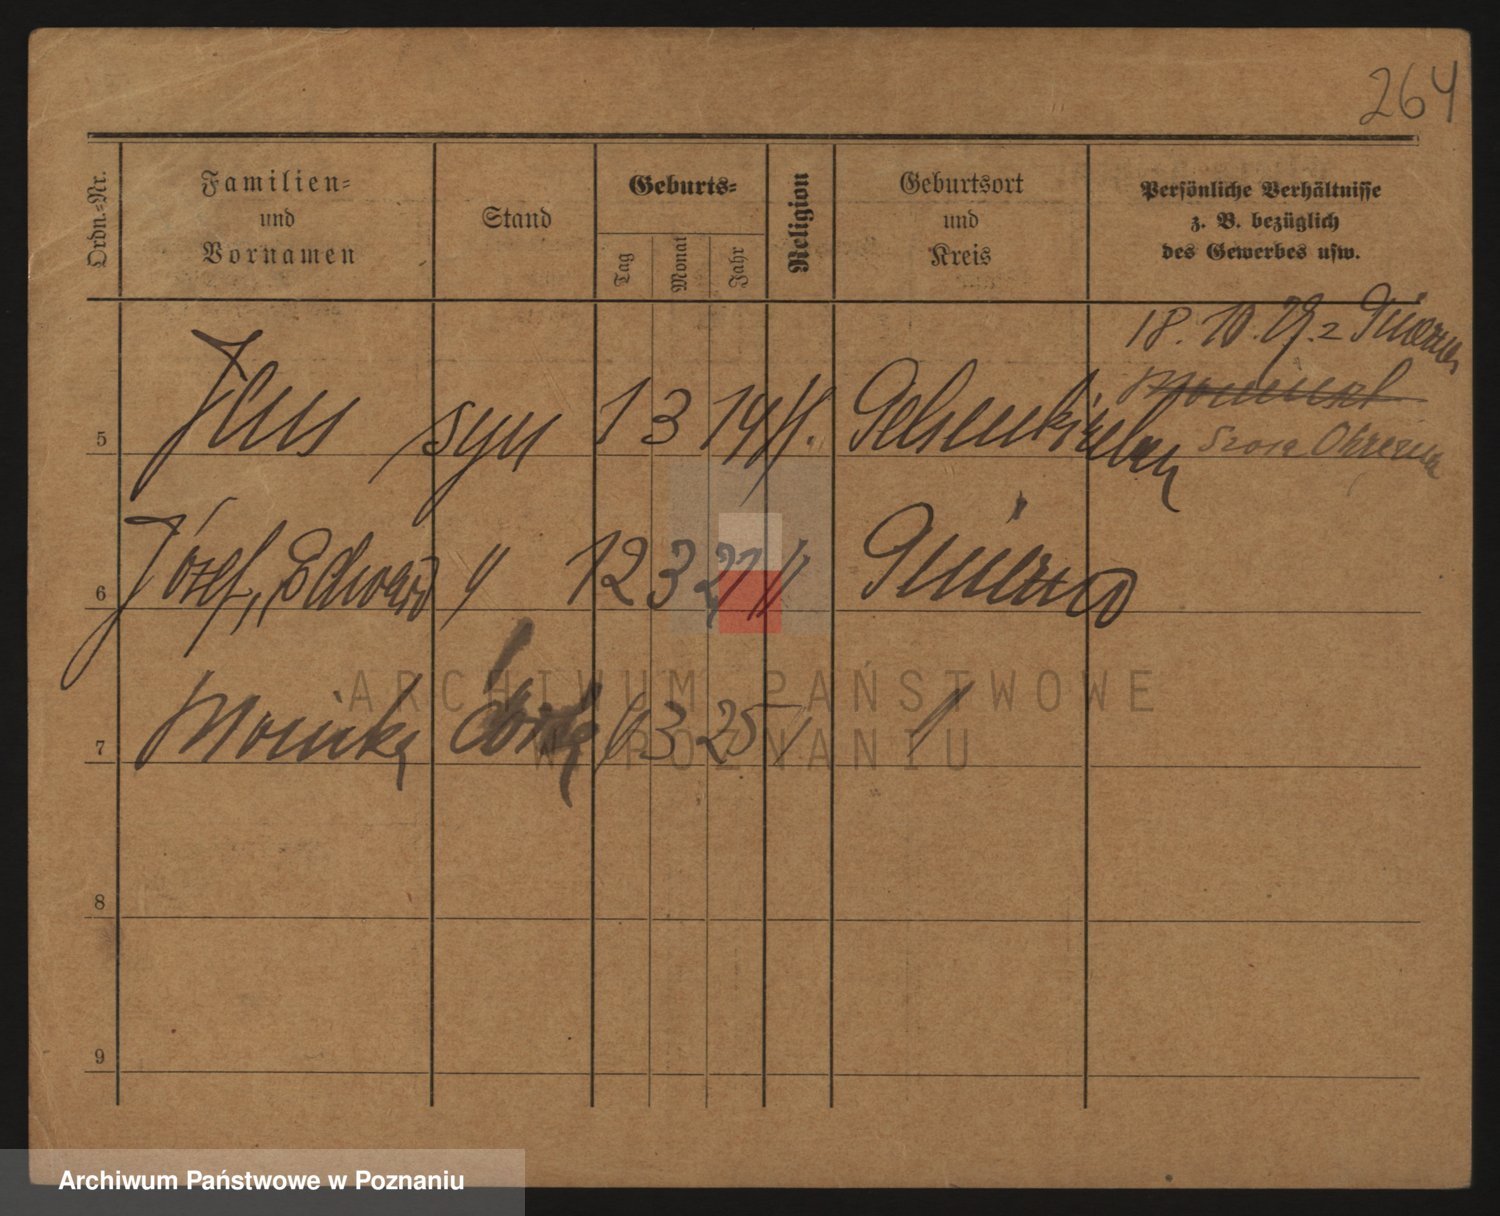 264
Ordn.-Nr.
Familien-
und
Vornamen
Stand
Geburts-
Tag
Monat
Jahr
Religion
Geburtsort
und
Kreis
Persönliche Verhältnisse
z. B. bezüglich
des Gewerbes usw.
18. 10. 29. z Gniezna
5 syn 1 3 14 Gelsenkirchen
6 Józef, Edward " 12 3 21 " Gniezno
ARCHIWUM PAŃSTWOWE
W POZNANIU
7 Monika córka 6 3 25 "
8
9
Archiwum Państwowe w Poznaniu